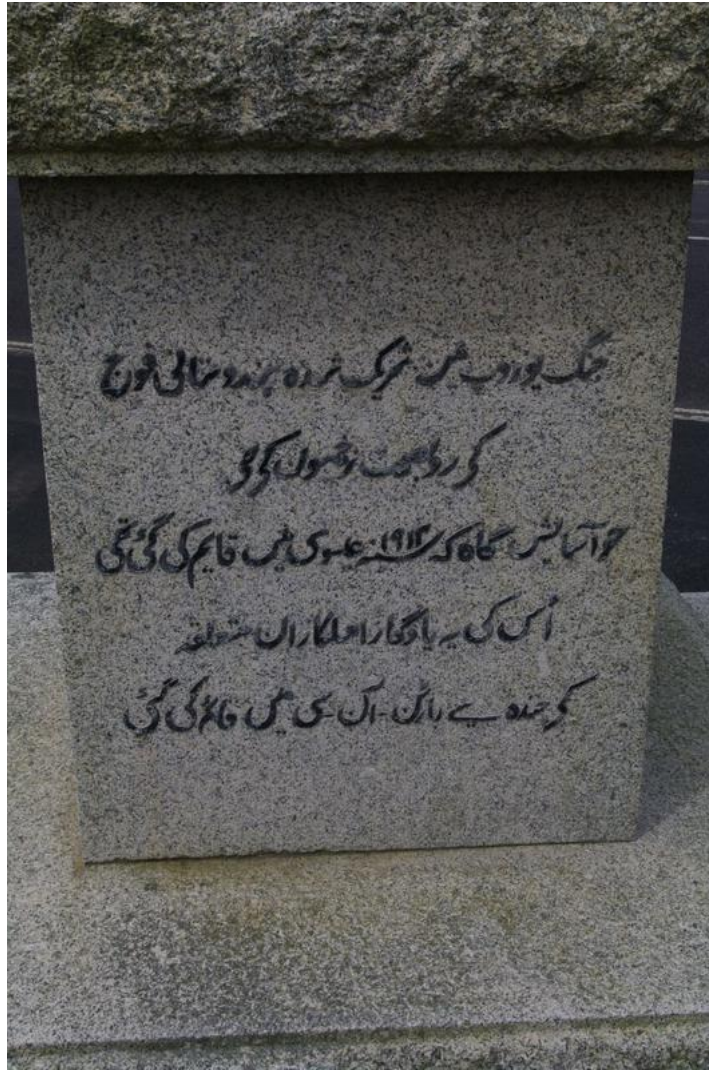 جنگ یوروپ میں شریک شدہ ہندوستانی فوج
کے روبصحت زخمیوں کی
جو آسایش گاہ کہ ۱۹۱۴ سنہ عیسوی میں قایم کی گئی تھی
اُس کی یہ یادگار اہلکاران متعلقہ
کے چندہ سے بارٹن۔ آن۔ سی میں قائم کی گئی